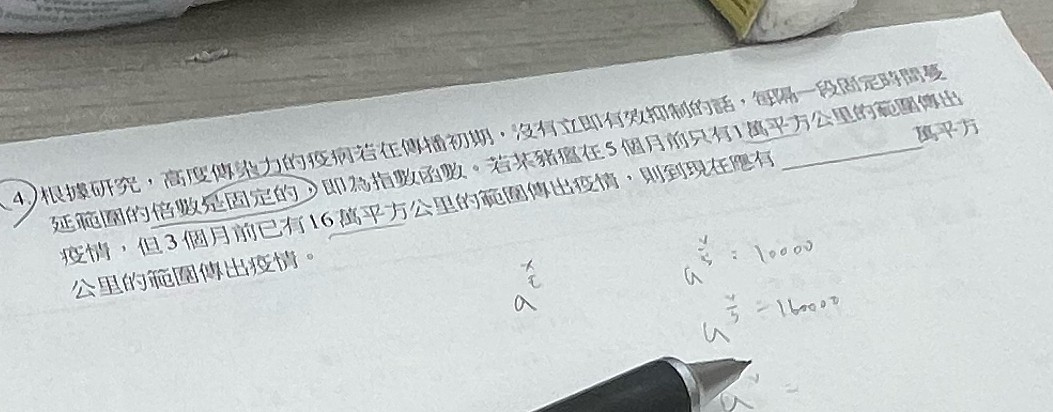 4. 根據研究，高度傳染力的疫病若在傳播初期，沒有立即有效抑制的話，每隔一段固定時間蔓
延範圍的倍數是固定的，即為指數函數。若某豬瘟在5個月前只有1萬平方公里的範圍傳出
疫情，但3個月前已有16萬平方公里的範圍傳出疫情，則到現在應有________萬平方
公里的範圍傳出疫情。
a^{x/t}
a^{x/5} = 10000
a^{x/3} = 160000